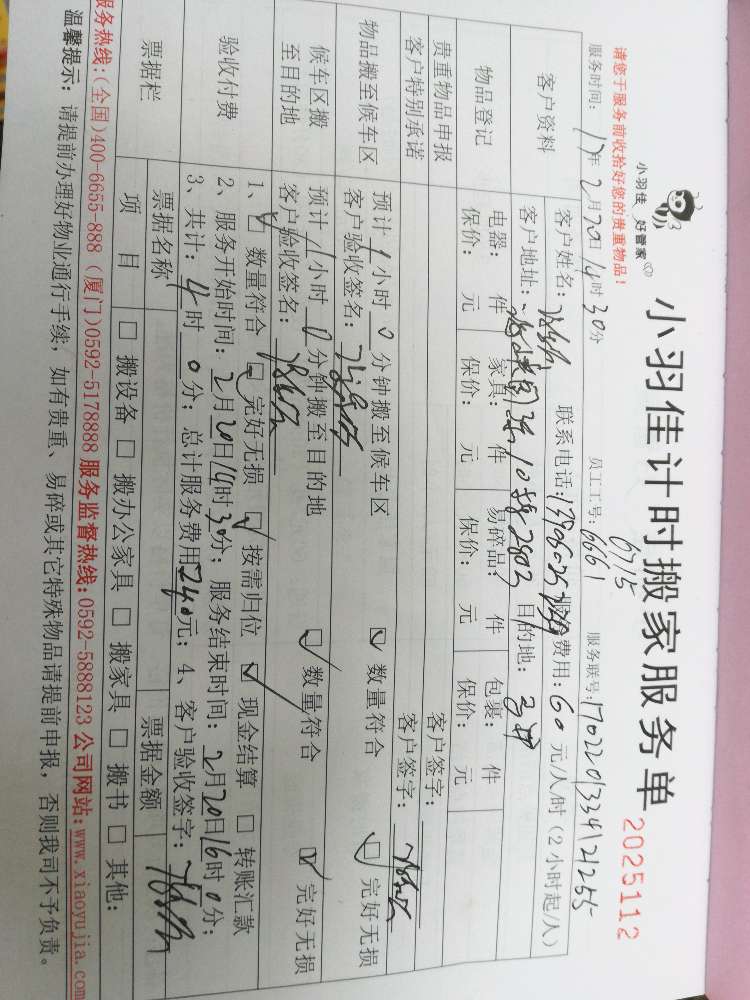 小羽佳 好管家
小羽佳计时搬家服务单
2025112
请您于服务前收拾好您的贵重物品!
6715
服务时间: 17年 2月20日 14时 30分 员工工号: 6661 服务联号:
客户资料
客户姓名: 联系电话: 费用: 60 元/人/时 (2小时起/人)
客户地址: 10号280 目的地:
物品登记
电器: 件 家具: 件 易碎品: 件 包裹: 件
保价: 元 保价: 元 保价: 元 保价: 元
贵重物品申报 客户签字:
客户特别承诺 客户签字:
物品搬至候车区
预计 1 小时 0 分钟搬至候车区 ☑ 数量符合 ☑ 完好无损
客户验收签名:
候车区搬至目的地
预计 1 小时 0 分钟搬至目的地 ☑ 数量符合 ☑ 完好无损
客户验收签名:
验收付费
1、☑ 数量符合 ☑ 完好无损 ☑ 按需归位 ☑ 现金结算 □ 转账汇款
2、服务开始时间: 2月20日14时30分; 服务结束时间: 2月20日16时0分;
3、共计: 4 时 0 分; 总计服务费用 240 元; 4、客户验收签字:
票据栏
票据名称 票据金额
项 目 □ 搬设备 □ 搬办公家具 □ 搬家具 □ 搬书 □ 其他:
服务热线:(全国)400-6655-888 (厦门)0592-5178888 服务监督热线:0592-5888123 公司网站:www.xiaoyujia.com
温馨提示: 请提前办理好物业通行手续, 如有贵重、易碎或其它特殊物品请提前申报, 否则我司不予负责。